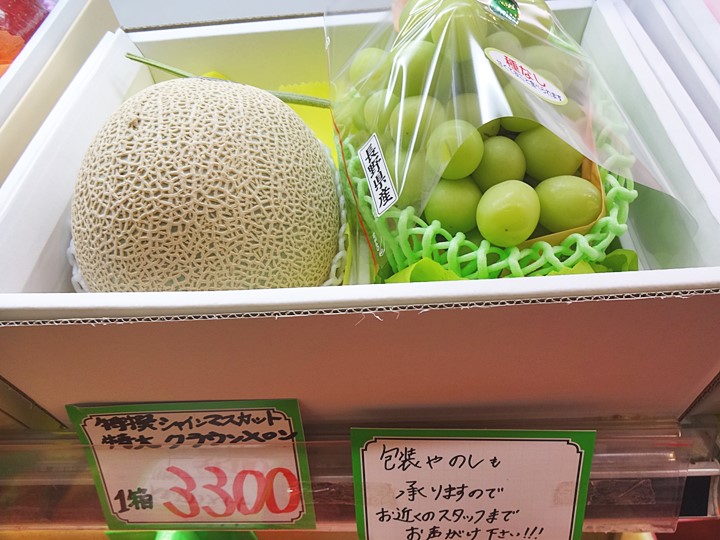 種なし
長野県産
特撰 シャインマスカット
特大 クラウンメロン
1箱 3300
包装やのしも
承りますので
お近くのスタッフまで
お声がけ下さい!!!